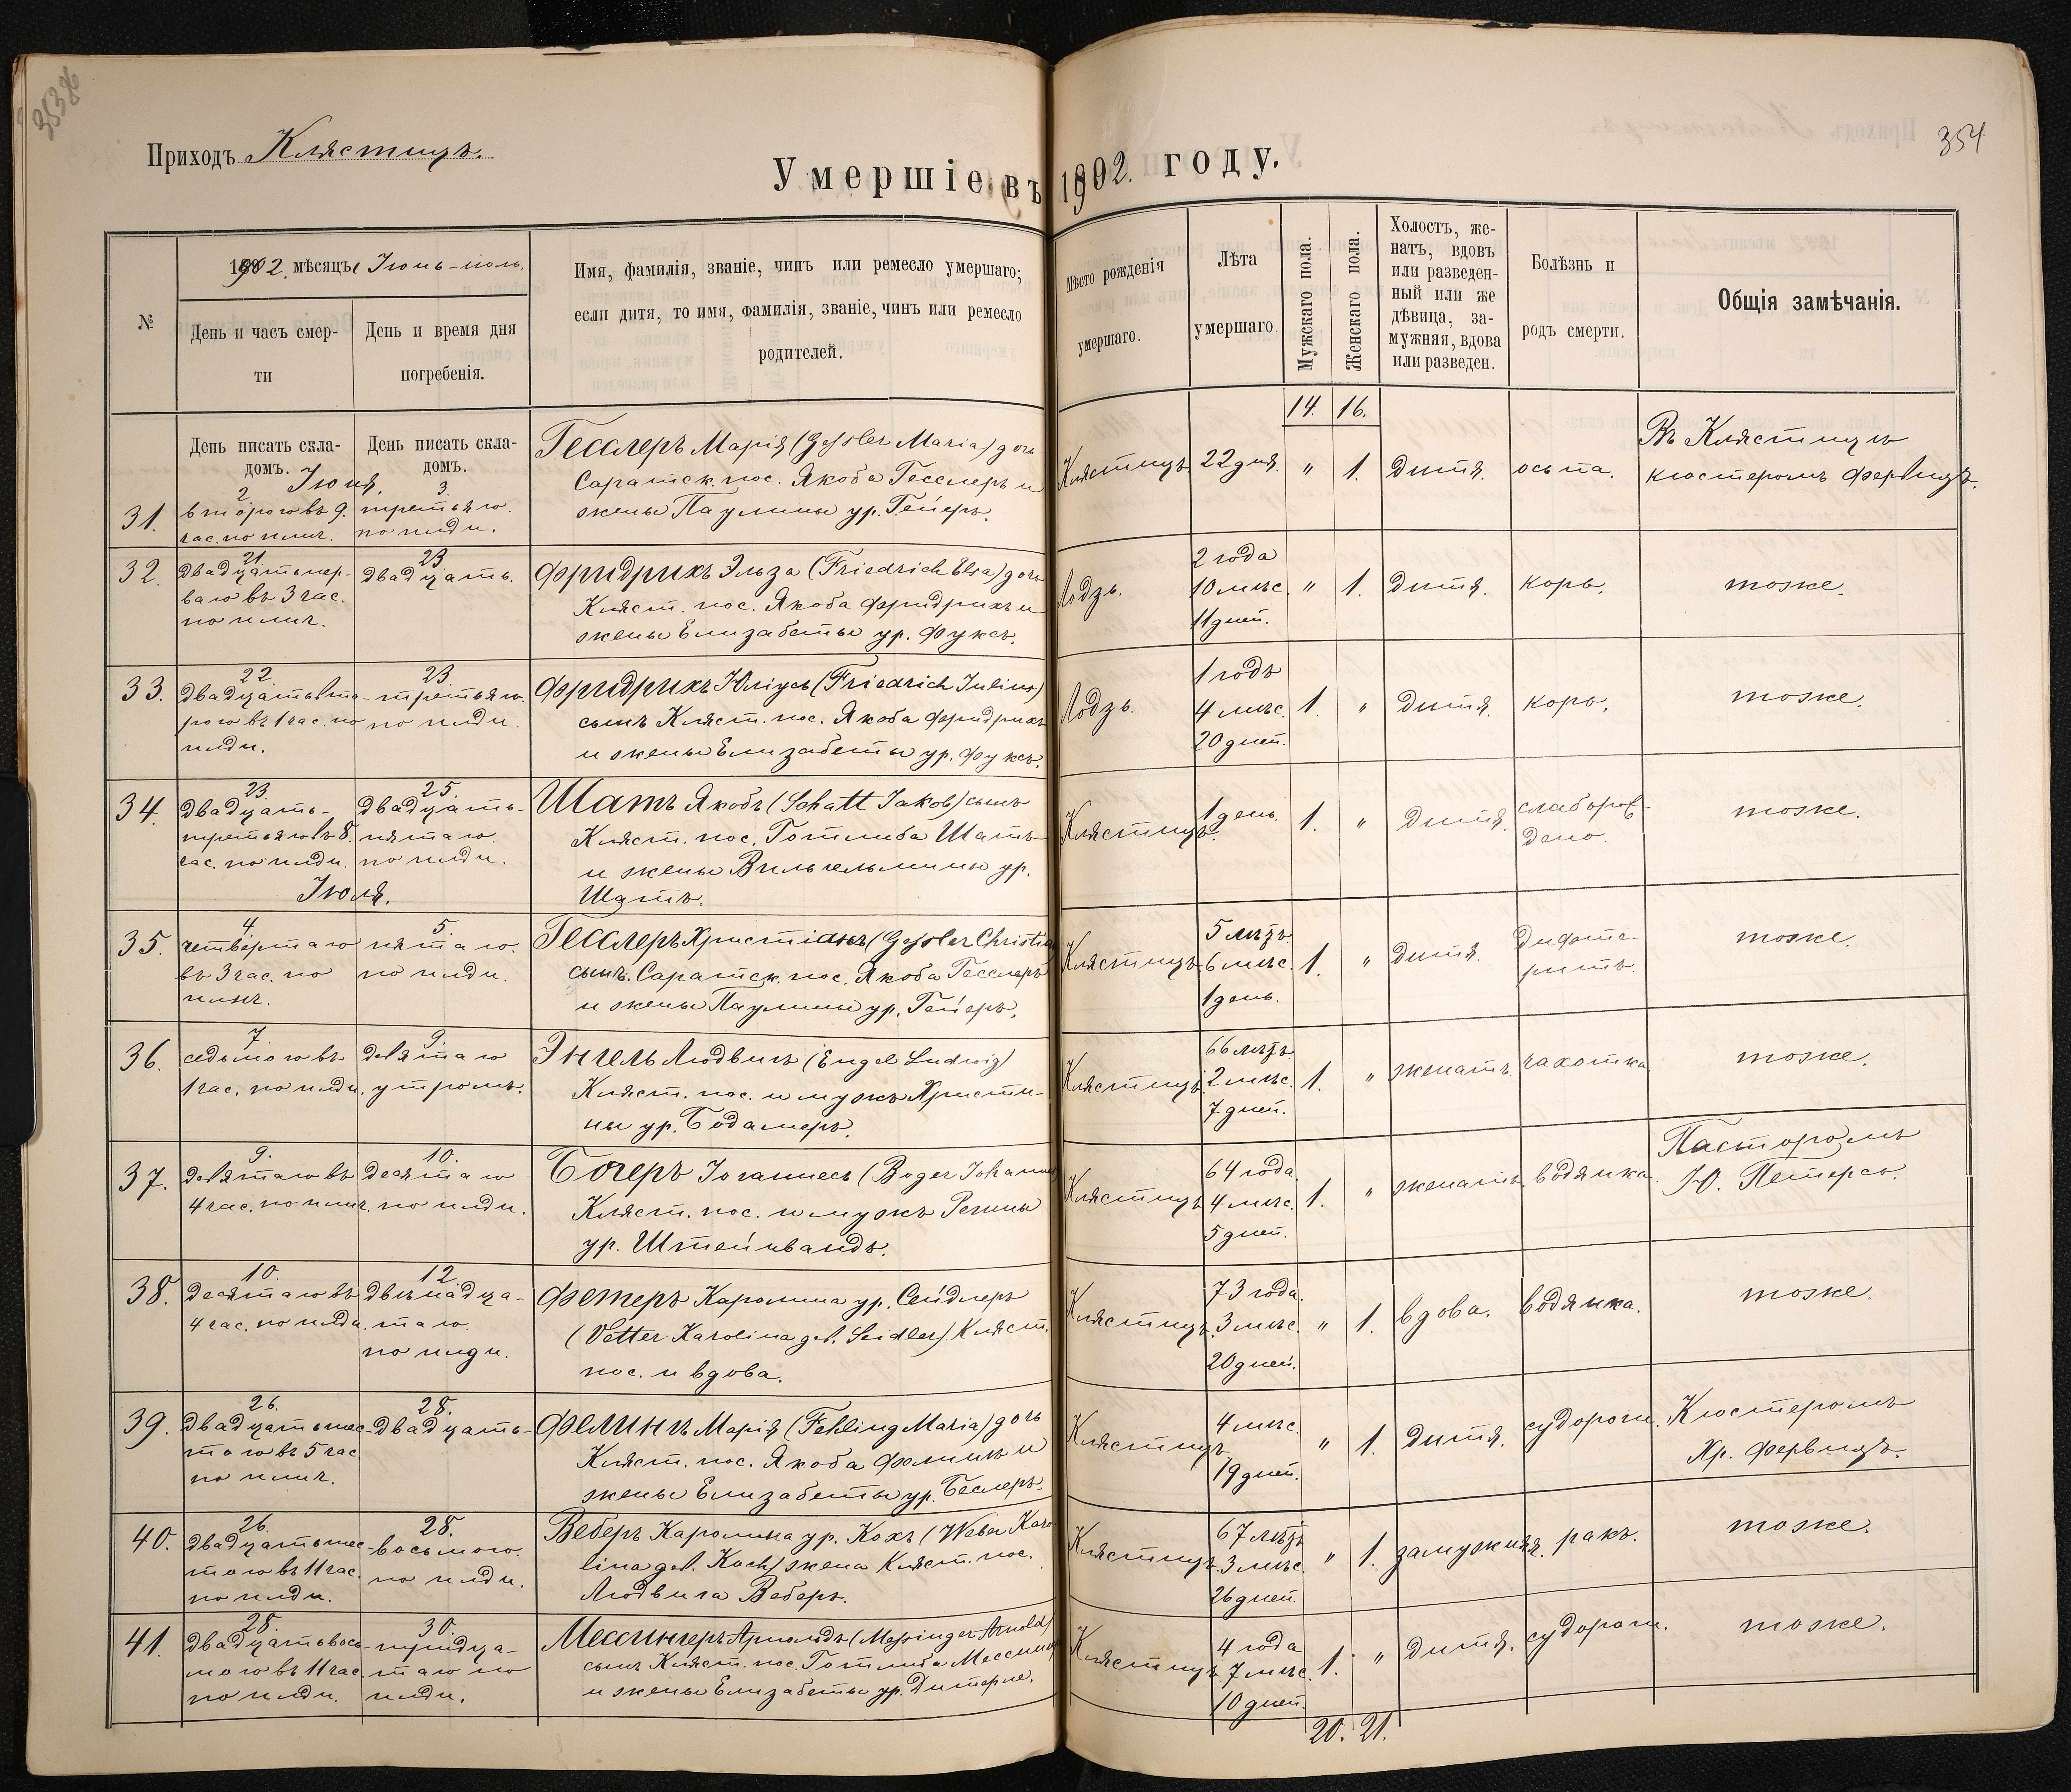 353 об
354
Приходъ Клястицъ.
Умершіе въ 1902. году.
№
1902. мѣсяцъ Іюнь-іюль.
День и часъ смер-
ти
День и время дня
погребенія.
Имя, фамилія, званіе, чинъ или ремесло умершаго;
если дитя, то имя, фамилія, званіе, чинъ или ремесло
родителей.
Мѣсто рожденія
умершаго.
Лѣта
умершаго.
Мужскаго пола.
Женскаго пола.
Холостъ, же-
натъ, вдовъ
или разведен-
ный или же
дѣвица, за-
мужняя, вдова
или разведен.
Болѣзнь и
родъ смерти.
Общія замѣчанія.
День писать скла-
домъ.
День писать скла-
домъ.
14. 16.
Іюня.
31.
2.
второго въ 9.
час. по плнч.
3.
третьяго.
по плдн.
Гесслеръ Марія (Gessler Maria) дочь
Саратск. пос. Якоба Гесслеръ и
жены Паулины ур. Гейеръ.
Клястицъ
22 дня.
" 1.
дитя.
оспа.
Въ Клястицъ
кюстеромъ Фервицъ.
32.
21.
двадцать пер-
ваго въ 3 час.
по плнч.
23.
двадцать.
Фридрихъ Эльза (Friedrich Elsa) дочь
Кляст. пос. Якоба Фридрихъ и
жены Елизабеты ур. Фуксъ.
Лодзь.
2 года
10 мѣс.
11 дней.
" 1.
дитя.
корь.
тоже.
33.
22.
двадцать вто-
рого въ 1 час. по
плдн.
23.
третьяго.
по плдн.
Фридрихъ Юліусъ (Friedrich Julius)
сынъ Кляст. пос. Якоба Фридрихъ
и жены Елизабеты ур. Фуксъ.
Лодзь.
1 годъ
4 мѣс.
20 дней.
1. "
дитя.
корь.
тоже.
34.
23.
двадцать-
третьяго въ 8.
час. по плдн.
25.
двадцать-
пятаго.
по плдн.
Шатъ Якобъ (Schatt Jakob) сынъ
Кляст. пос. Готлиба Шатъ
и жены Вильгельмины ур.
Шатъ.
Клястицъ.
1 день.
1. "
дитя.
слаборож-
дено.
тоже.
Іюля.
35.
4.
четвертаго
въ 3 час. по
плнч.
5.
пятаго.
по плдн.
Гесслеръ Христіанъ (Gessler Christian
сынъ. Саратск. пос. Якоба Гесслеръ
и жены Паулины ур. Гейеръ.
Клястицъ
5 лѣтъ
6 мѣс.
1 день.
1. "
дитя.
дифте-
ритъ.
тоже.
36.
7.
седьмого въ
1 час. по плдн.
9.
девятаго
утромъ.
Энгель Людвигъ (Engel Ludwig)
Кляст. пос. и мужъ Христи-
ны ур. Бодамеръ.
Клястицъ
66 лѣтъ
2 мѣс.
7 дней.
1. "
женатъ.
чахотка.
тоже.
37.
9.
девятаго въ
4 час. по плнч.
10.
десятаго
по плдн.
Богеръ Іоганнесъ (Boger Johannes
Кляст. пос. и мужъ Регины
ур. Штейнвандъ.
Клястицъ
64 года.
4 мѣс.
5 дней.
1. "
женатъ.
водянка.
Пасторомъ
Ю. Петерсъ.
38.
10.
десятаго въ
4 час. по плдн.
12.
двѣнадца-
таго.
по плдн.
Фетеръ Каролина ур. Сейдлеръ
(Vetter Karolina geb. Seidler) Кляст.
пос. и вдова.
Клястицъ.
73 года.
3 мѣс.
20 дней.
" 1.
вдова.
водянка.
тоже.
39.
26.
двадцать шес-
того въ 5 час.
по плнч.
28.
двадцать-
Фелингъ Марія (Fehling Maria) дочь
Кляст. пос. Якоба Фелингъ и
жены Елизабеты ур. Беслеръ.
Клястицъ
4 мѣс.
19 дней.
" 1.
дитя.
судороги.
Кюстеромъ
Хр. Фервицъ.
40.
26.
двадцать шес-
того въ 11 час.
по плдн.
28.
восьмого.
по плдн.
Веберъ Каролина ур. Кохъ (Weber Karo-
lina geb. Koch) жена Кляст. пос.
Людвига Веберъ.
Клястицъ
67 лѣтъ
3 мѣс.
26 дней.
" 1.
замужняя.
ракъ.
тоже.
41.
28.
двадцать вось-
мого въ 11 час.
по плдн.
30.
тридца-
таго по
плдн.
Мессингеръ Арнольдъ (Messinger Arnold)
сынъ Кляст. пос. Готлиба Мессинг
и жены Елизабеты ур. Дитерле.
Клястицъ
4 года
7 мѣс.
10 дней.
1. "
дитя.
судороги.
тоже.
20. 21.